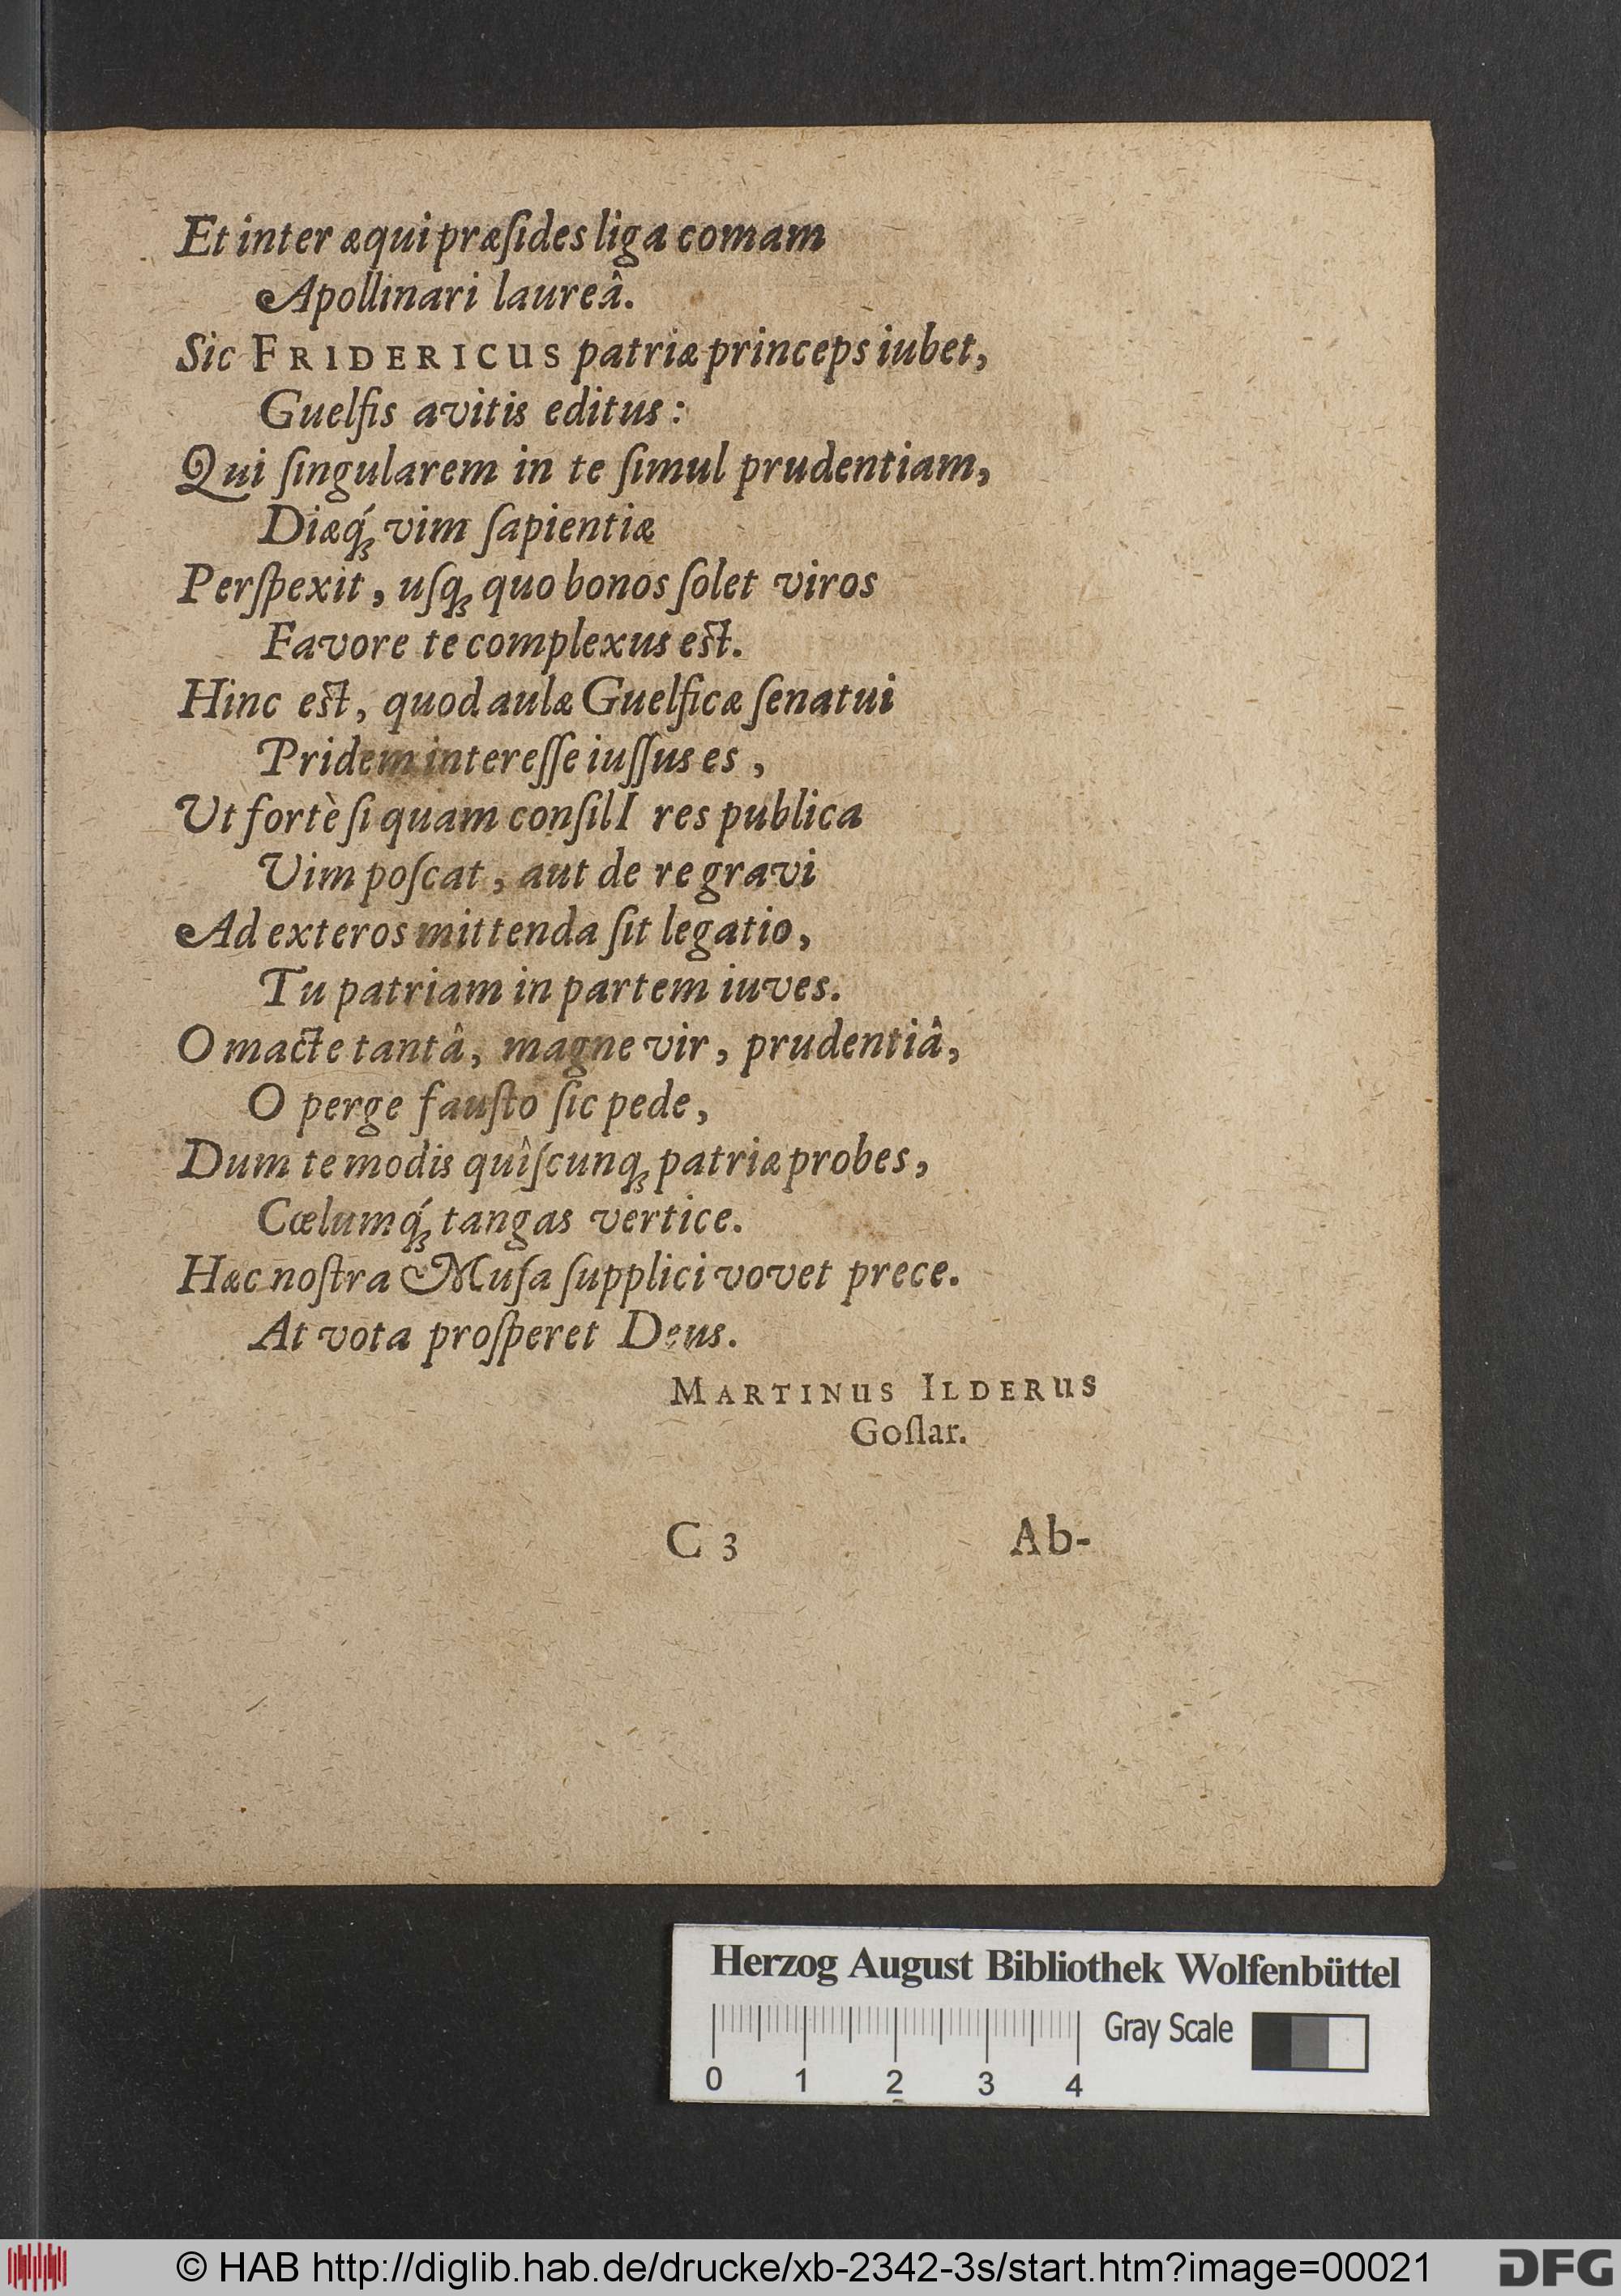 Et inter æqui præſides liga comam
Apollinari laureâ.
Sic FRIDERICUS patriæ princeps iubet,
Guelfis avitis editus:
Qui ſingularem in te ſimul prudentiam,
Diæq́; vim ſapientiæ
Perſpexit, uſq; quo bonos ſolet viros
Favore te complexus eſt.
Hinc eſt, quod aulæ Guelficæ ſenatui
Pridem intereſſe iuſſus es,
Ut fortè ſi quam conſilI res publica
Vim poſcat, aut de re gravi
Ad exteros mittenda ſit legatio,
Tu patriam in partem iuves.
O macte tantâ, magne vir, prudentiâ,
O perge fauſto ſic pede,
Dum te modis quîſcunq; patriæ probes,
Cœlumq́; tangas vertice.
Hæc noſtra Muſa ſupplici vovet prece.
At vota proſperet Deus.
MARTINUS ILDERUS
Goſlar.
C 3 Ab-
Herzog August Bibliothek Wolfenbüttel
Gray Scale
0 1 2 3 4
© HAB http://diglib.hab.de/drucke/xb-2342-3s/start.htm?image=00021
DFG